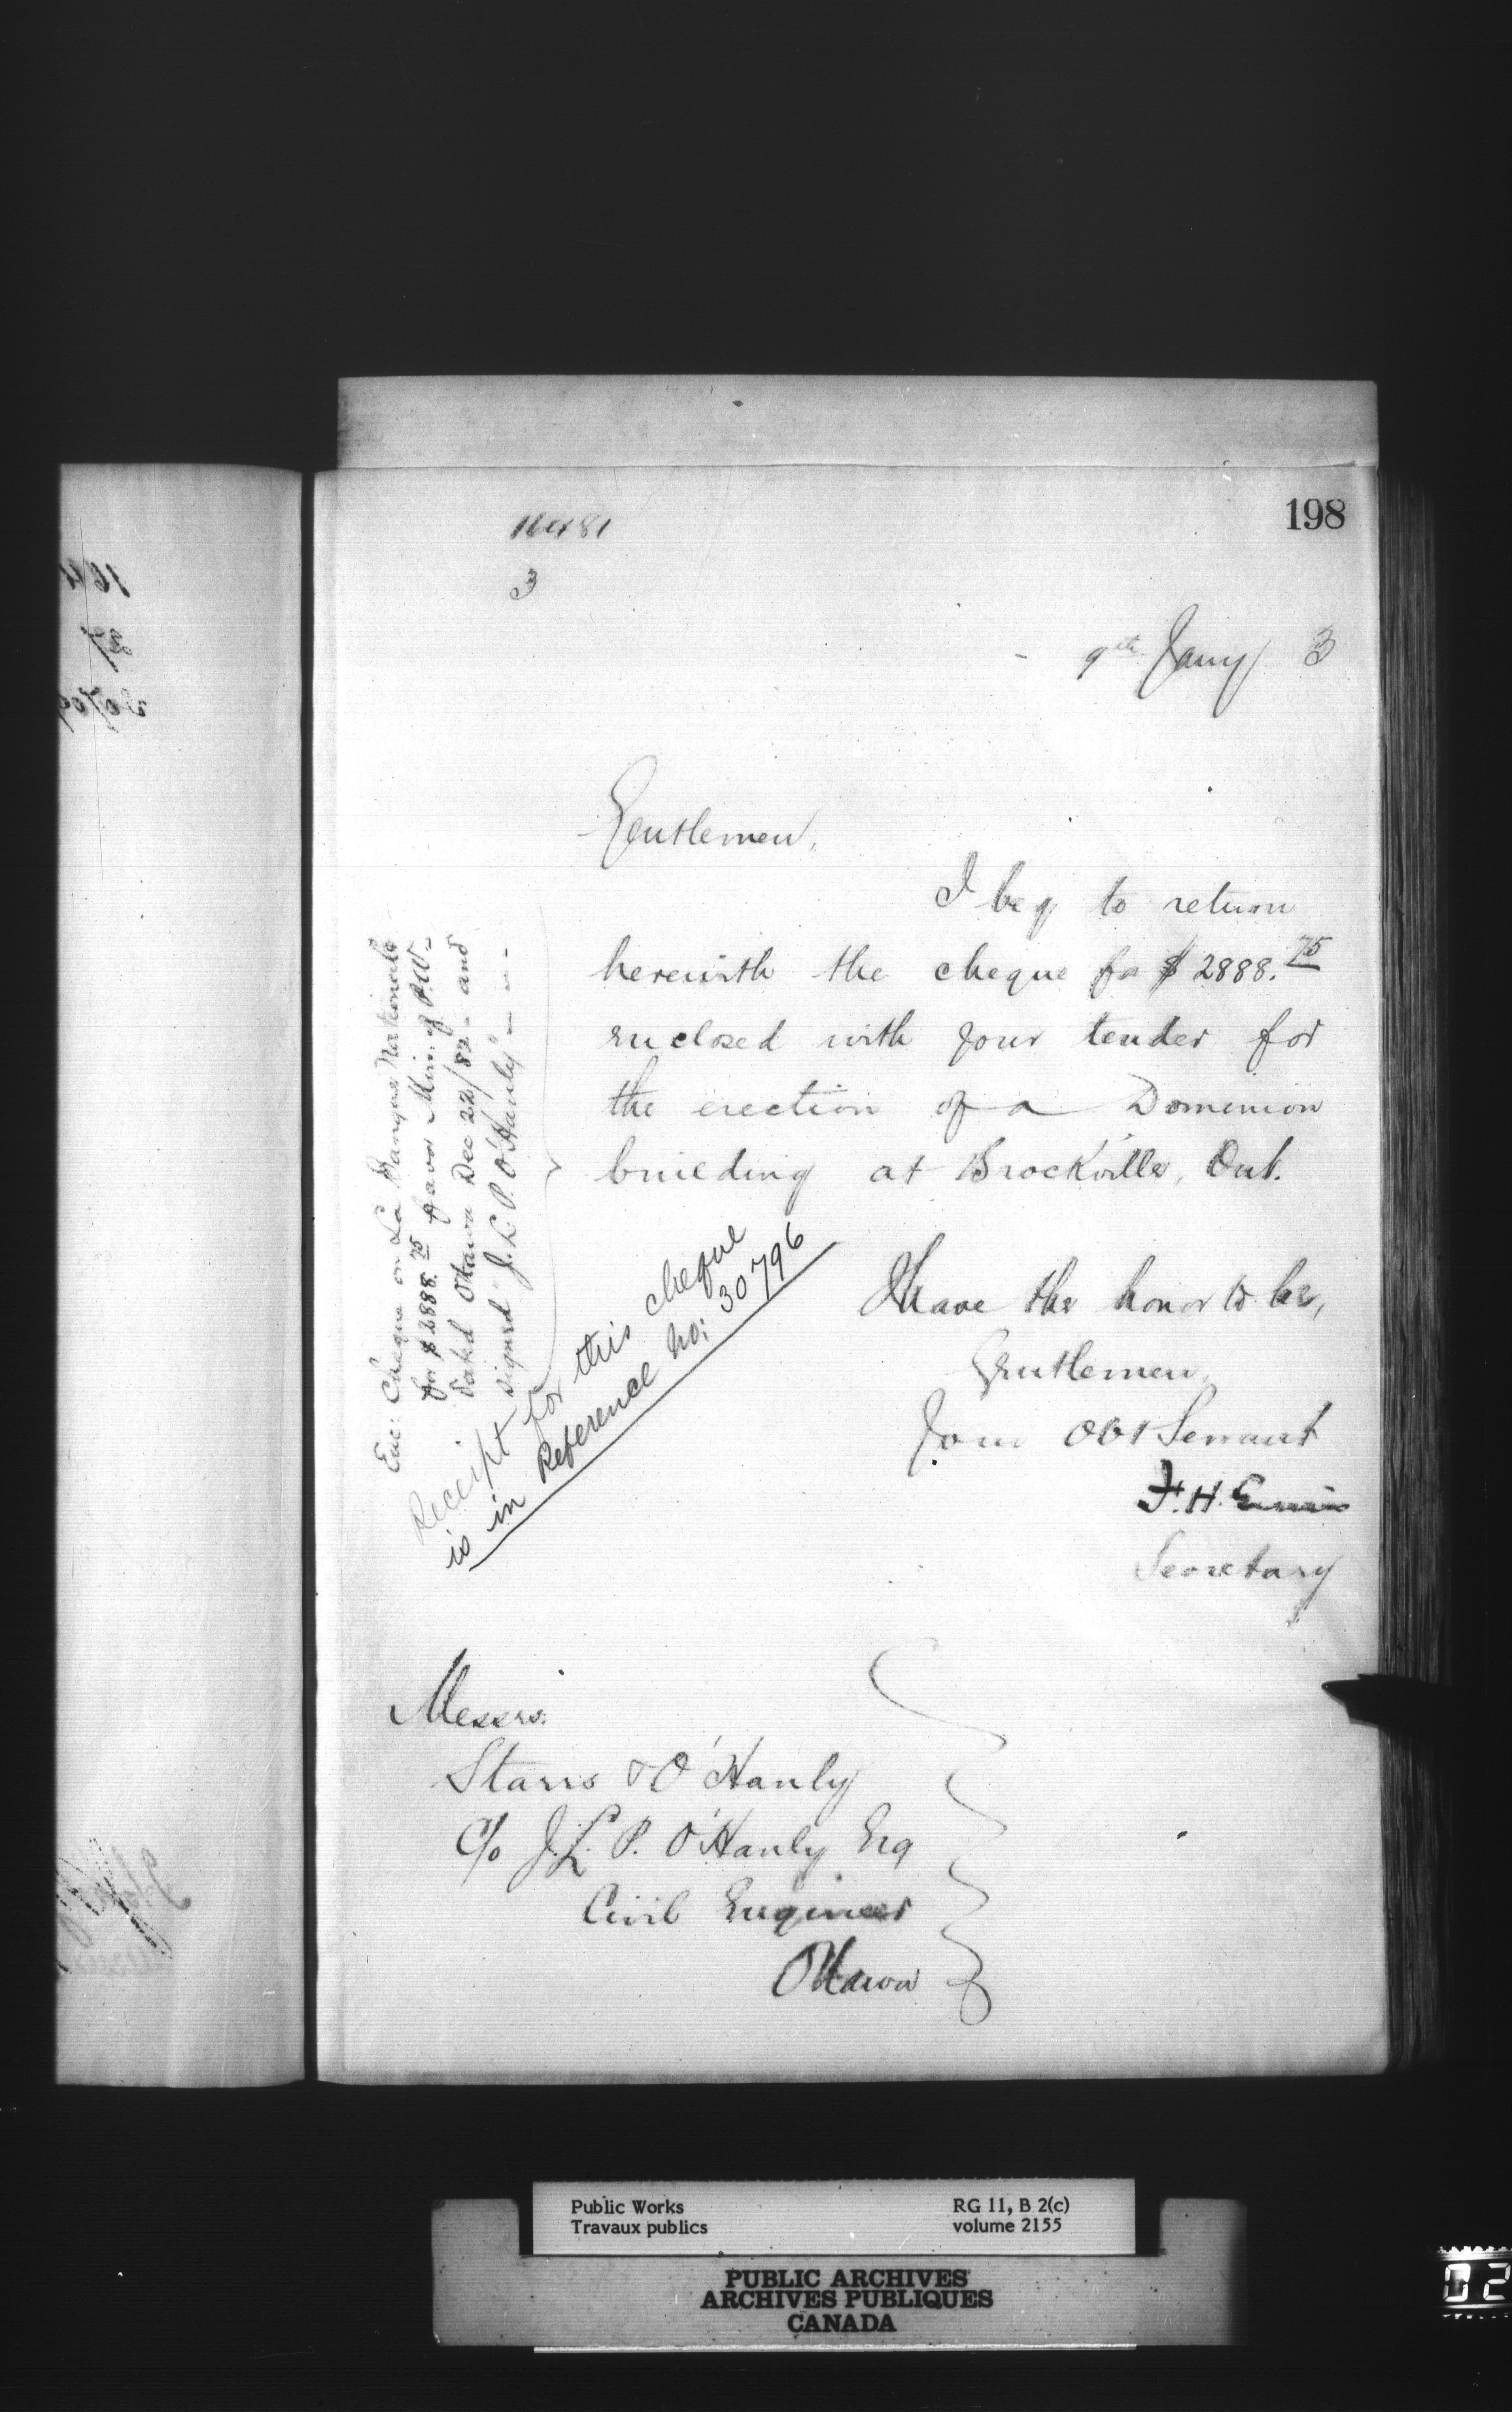 198
16481
3
9th Jany 3
Gentlemen,
I beg to return
herewith the cheque for $2888.75
enclosed with your tender for
the erection of a Dominion
building at Brockville, Ont.
I have the honor to be,
Gentlemen,
Your Obt Servant
F. H. Ennis
Secretary
Enc: Cheque on La Banque Nationale
for $2888.75 favor Min. of P.W-
dated Ottawa Dec 22/82 - and
signed "J. L. P. O'Hanly" - - -
Receipt for this cheque
is in Reference No: 30796
Messrs.
Starrs & O'Hanly
C/o J. L. P. O'Hanly Esq
Civil Engineer
Ottawa
Public Works
Travaux publics
RG 11, B 2(c)
volume 2155
PUBLIC ARCHIVES
ARCHIVES PUBLIQUES
CANADA
02